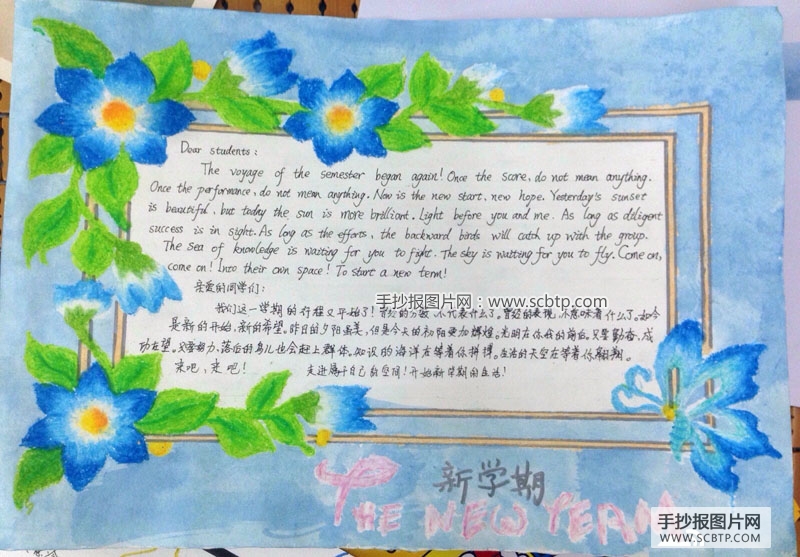 Dear students:
The voyage of the semester began again! Once the score, do not mean anything.
Once the performance, do not mean anything. Now is the new start, new hope. Yesterday's sunset
is beautiful, but today the sun is more brilliant. Light before you and me. As long as diligent
success is in sight. As long as the efforts, the backward birds will catch up with the group.
The sea of knowledge is waiting for you to fight. The sky is waitting for you to fly. Come on,
come on! Into their own space! To start a new term!
亲爱的同学们:
手抄报图片网:www.scbtp.com
我们这一学期的行程又开始了!曾经的分数,不代表什么了。曾经的表现,不意味着什么了。如今
是新的开始,新的希望。昨日的夕阳虽美,但是今天的初阳更加辉煌。光明在你我的前面。只要勤奋,成
功在望。只要努力,落后的鸟儿也会赶上群体。知识的海洋在等着你拼搏。生活的天空在等着你翱翔。
来吧,来吧! 走进属于自己的空间!开始新学期的生活!
新学期
THE NEW YEAR
手抄报图片网
WWW.SCBTP.COM